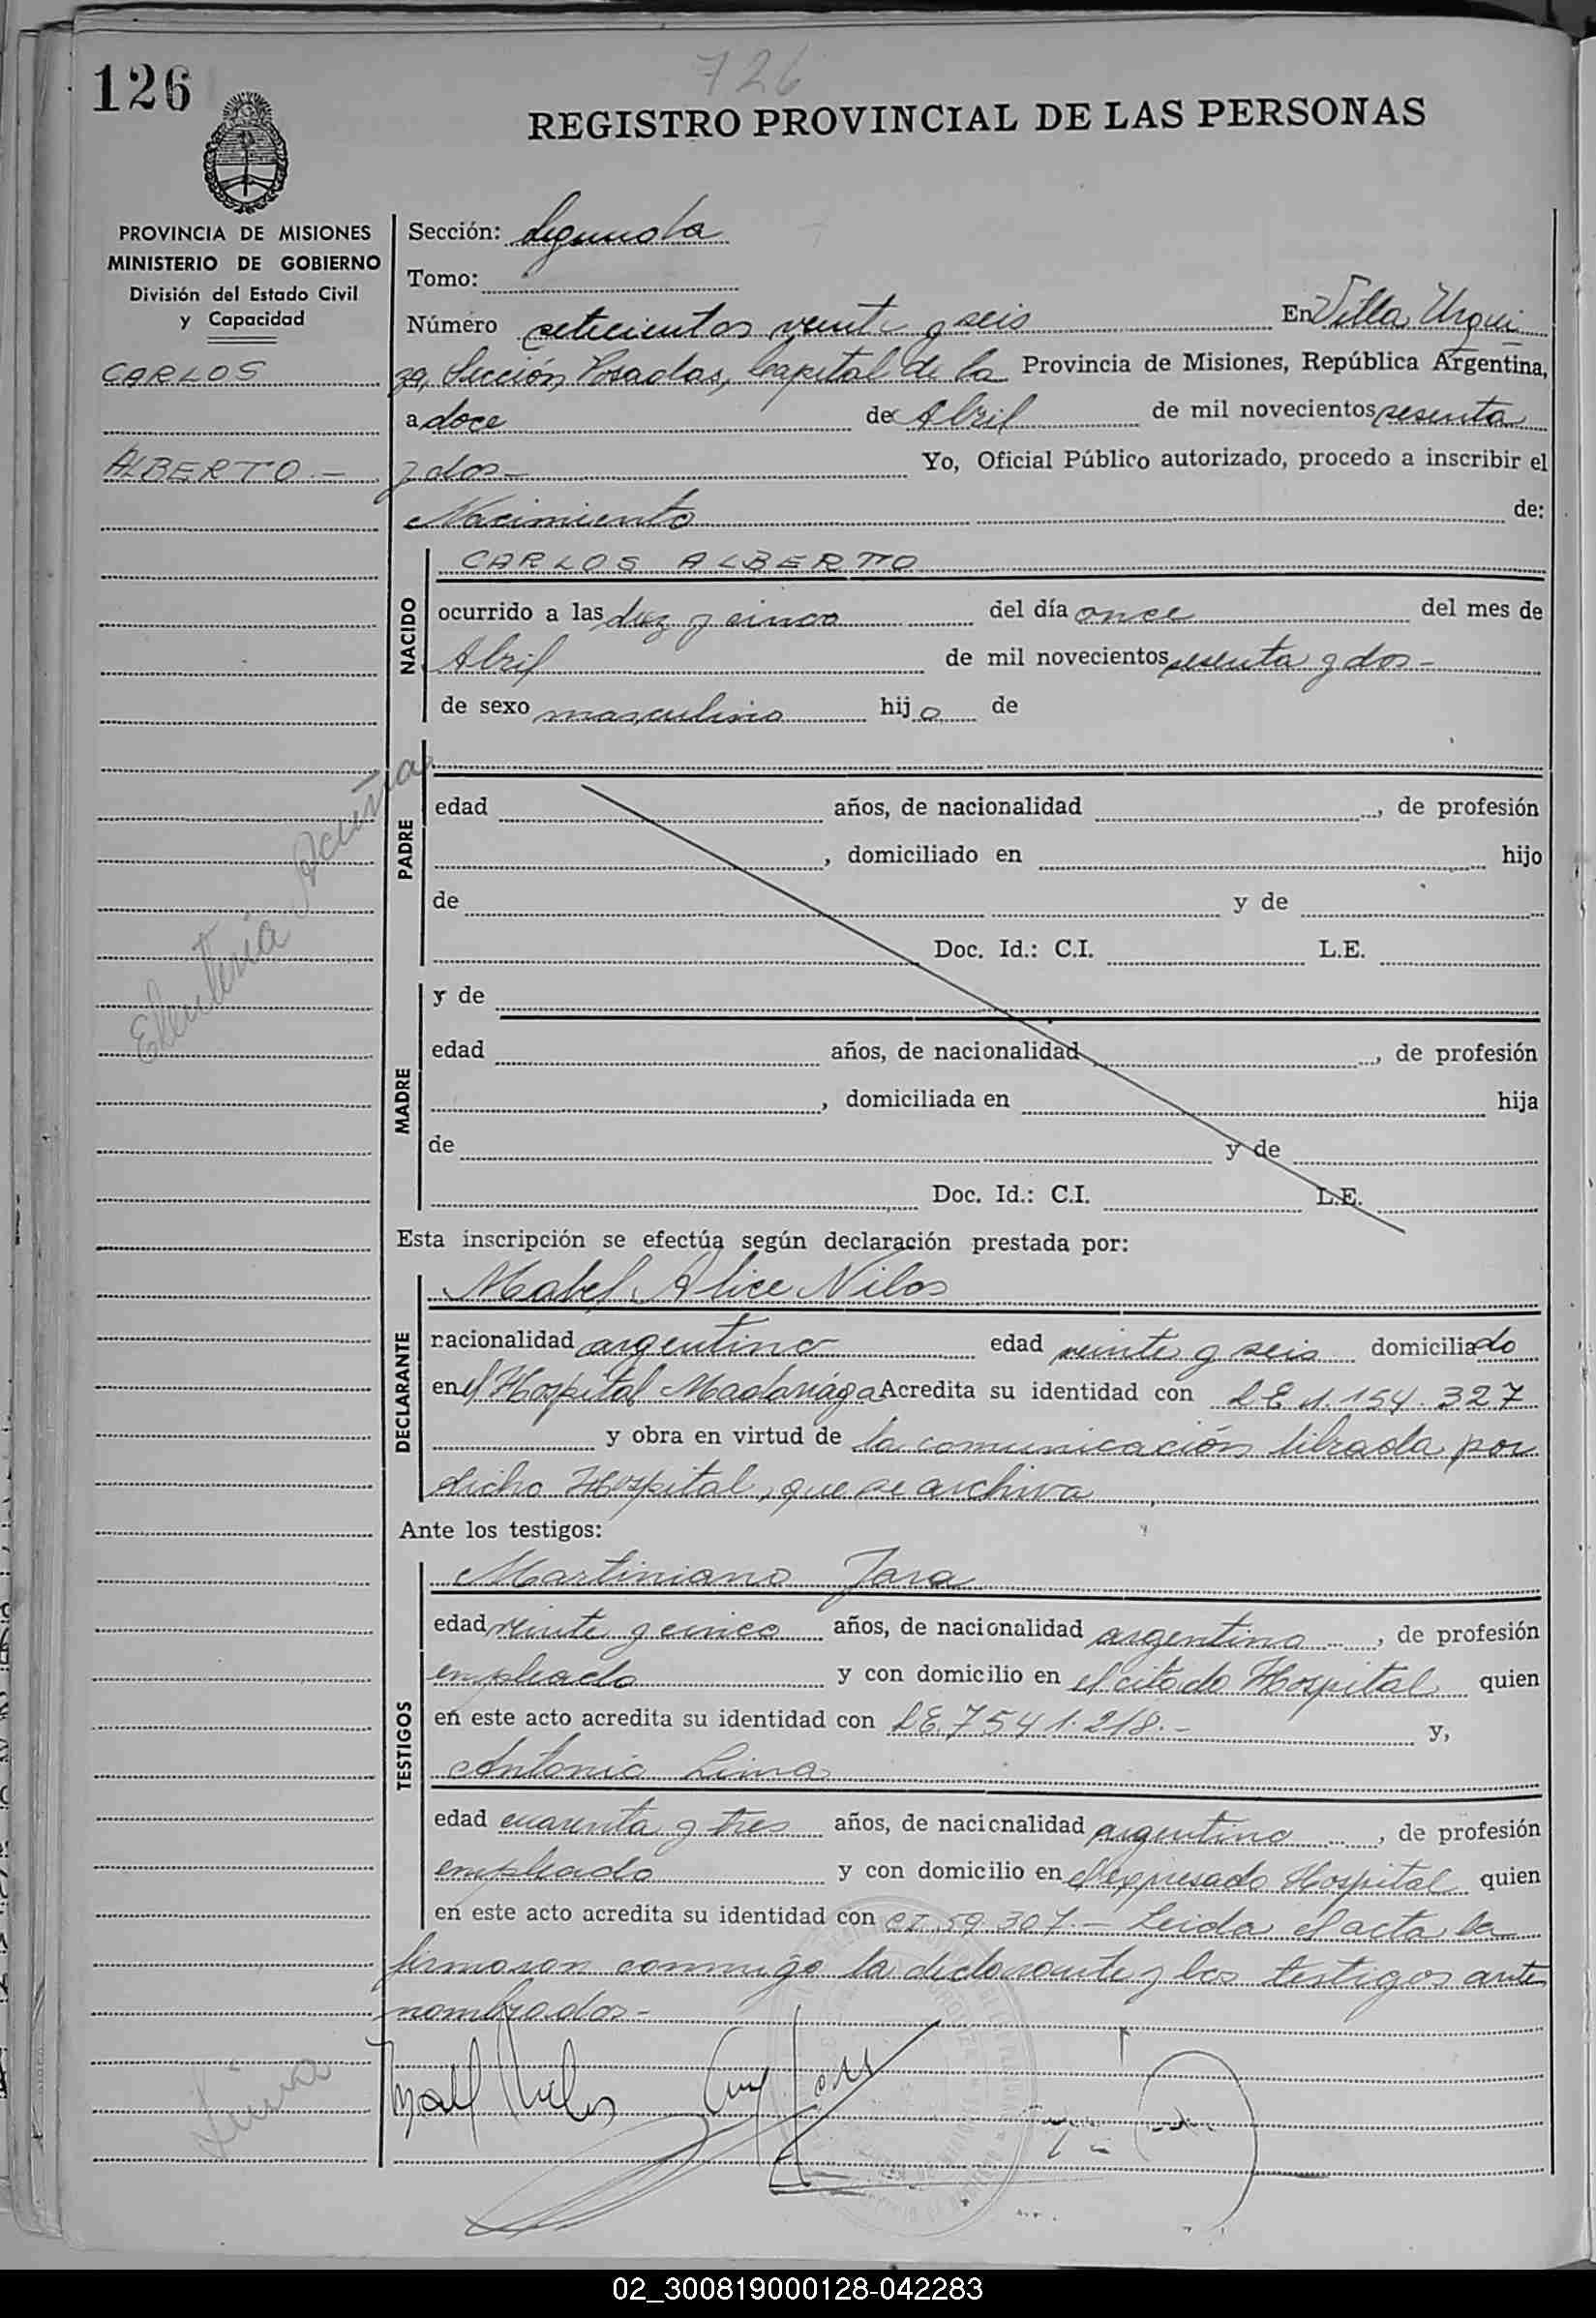 126
726
REGISTRO PROVINCIAL DE LAS PERSONAS
PROVINCIA DE MISIONES
MINISTERIO DE GOBIERNO
División del Estado Civil
y Capacidad
CARLOS
ALBERTO.-
Eleuteria Acuña
Lima
Sección: Segunda
Tomo:
Número setecientos veinte y seis En Villa Urqui
za, Sección Posadas, Capital de la Provincia de Misiones, República Argentina,
a doce de Abril de mil novecientos sesenta
y dos- Yo, Oficial Público autorizado, procedo a inscribir el
Nacimiento de:
NACIDO
CARLOS ALBERTO
ocurrido a las diez y cinco del día once del mes de
Abril de mil novecientos sesenta y dos-
de sexo masculino hijo de
PADRE
edad años, de nacionalidad , de profesión
, domiciliado en hijo
de y de
Doc. Id.: C.I. L.E.
MADRE
y de
edad años, de nacionalidad , de profesión
, domiciliada en hija
de y de
Doc. Id.: C.I. L.E.
Esta inscripción se efectúa según declaración prestada por:
DECLARANTE
Mabel Alice Nilos
nacionalidad argentino edad veinte y seis domiciliado
en el Hospital Madariaga Acredita su identidad con LE 1.154.327
y obra en virtud de la comunicación librada por
dicho Hospital, que se archiva
Ante los testigos:
TESTIGOS
Martiniano Jara
edad veinte y cinco años, de nacionalidad argentino , de profesión
empleado y con domicilio en el citado Hospital quien
en este acto acredita su identidad con LE.7541.218.- y,
Antonio Lima
edad cuarenta y tres años, de nacionalidad argentino , de profesión
empleado y con domicilio en el expresado Hospital quien
en este acto acredita su identidad con CI 59.307.- Leida el acta la
firmaron conmigo la declarante y los testigos ante
nombrados-
02_300819000128-042283